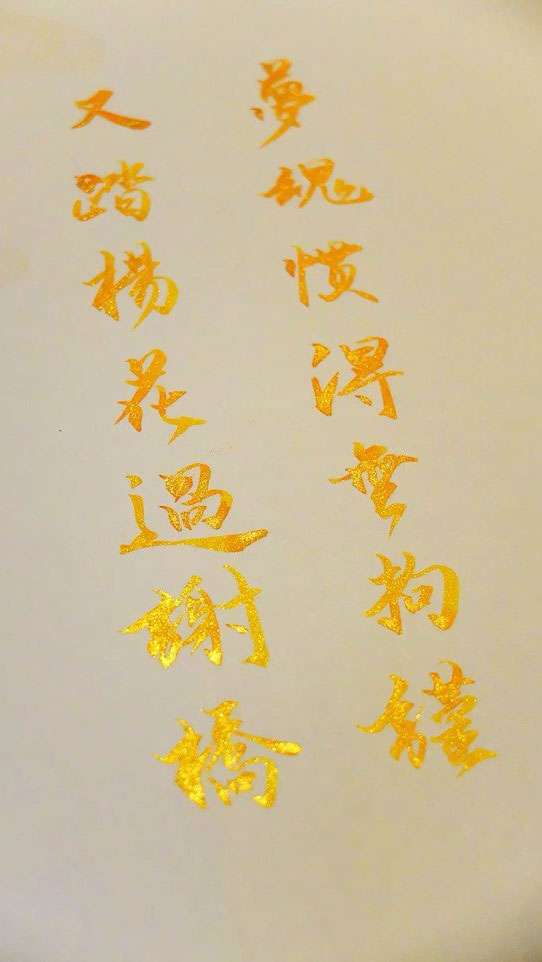 夢魂慣得無拘
又踏楊花過謝橋